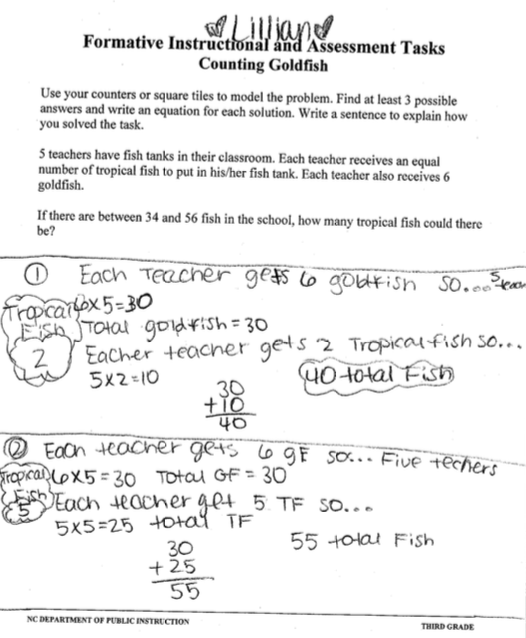 Lillian
Formative Instructional and Assessment Tasks
Counting Goldfish
Use your counters or square tiles to model the problem. Find at least 3 possible
answers and write an equation for each solution. Write a sentence to explain how
you solved the task.
5 teachers have fish tanks in their classroom. Each teacher receives an equal
number of tropical fish to put in his/her fish tank. Each teacher also receives 6
goldfish.
If there are between 34 and 56 fish in the school, how many tropical fish could there
be?
① Each Teacher gets 6 goldfish so... 5
6x5=30
Total goldfish = 30
Tropical Fish 2
Eacher teacher gets 2 Tropical fish so...
5x2=10
40 total Fish
30
+10
40
② Each teacher gets 6 gF so... Five techers
6x5=30 Total GF = 30
Tropical Fish 5
Each teacher get 5 TF so...
5x5=25 total TF
55 total Fish
30
+25
55
NC DEPARTMENT OF PUBLIC INSTRUCTION
THIRD GRADE